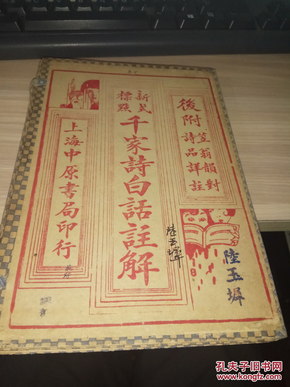 後附
笠翁韻對
詩品詳註
新式
標點
千家詩白話註解
上海中原書局印行
陸玉墀
陸玉墀
孔夫子旧书网